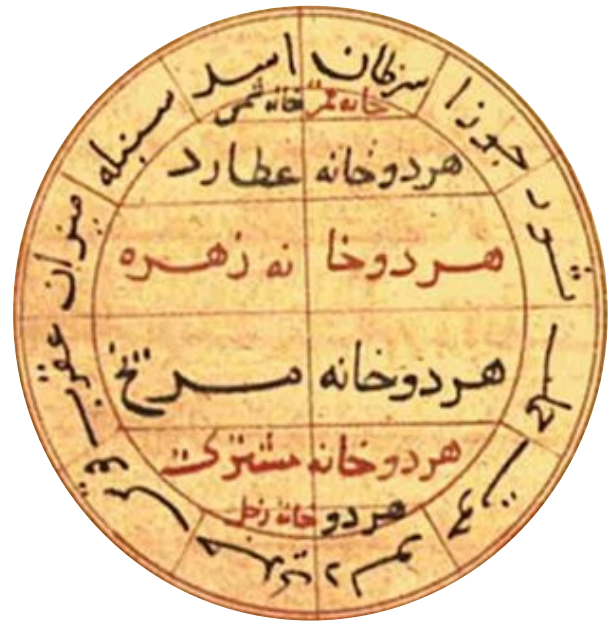 سرطان
اسد
سنبله
میزان
عقرب
قوس
جدی
دلو
حوت
حمل
ثور
جوزا
خانه قمر خانه شمس
هر دو خانه عطارد
هر دو خانه زهره
هر دو خانه مریخ
هر دو خانه مشتری
هر دو خانه زحل